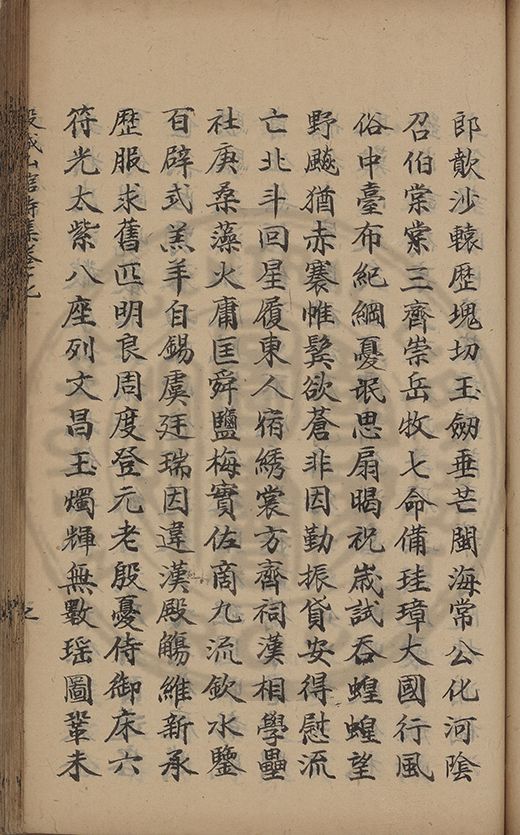 郎歕沙轅歷塊切玉劒垂芒閩海常公化河陰
召伯棠棠三齊崇岳牧七命備珪璋大國行風
俗中臺布紀綱憂氓思扇暍祝歲試吞蝗蝗望
野飈猶赤褰帷鬓欲蒼非因勤振貸安得慰流
亡北斗回星履東人宿綉裳方齊祠漢相學壘
社庚桑藻火庸匡舜鹽梅實佐商九流欽水鑒
百辟式羔羊自錫虞廷瑞因違漢殿觴維新承
歷服求舊匹明良周度登元老殷憂侍御床六
符光太紫八座列文昌玉燭輝無斁瑶圖鞏未
山官詩集卷之九